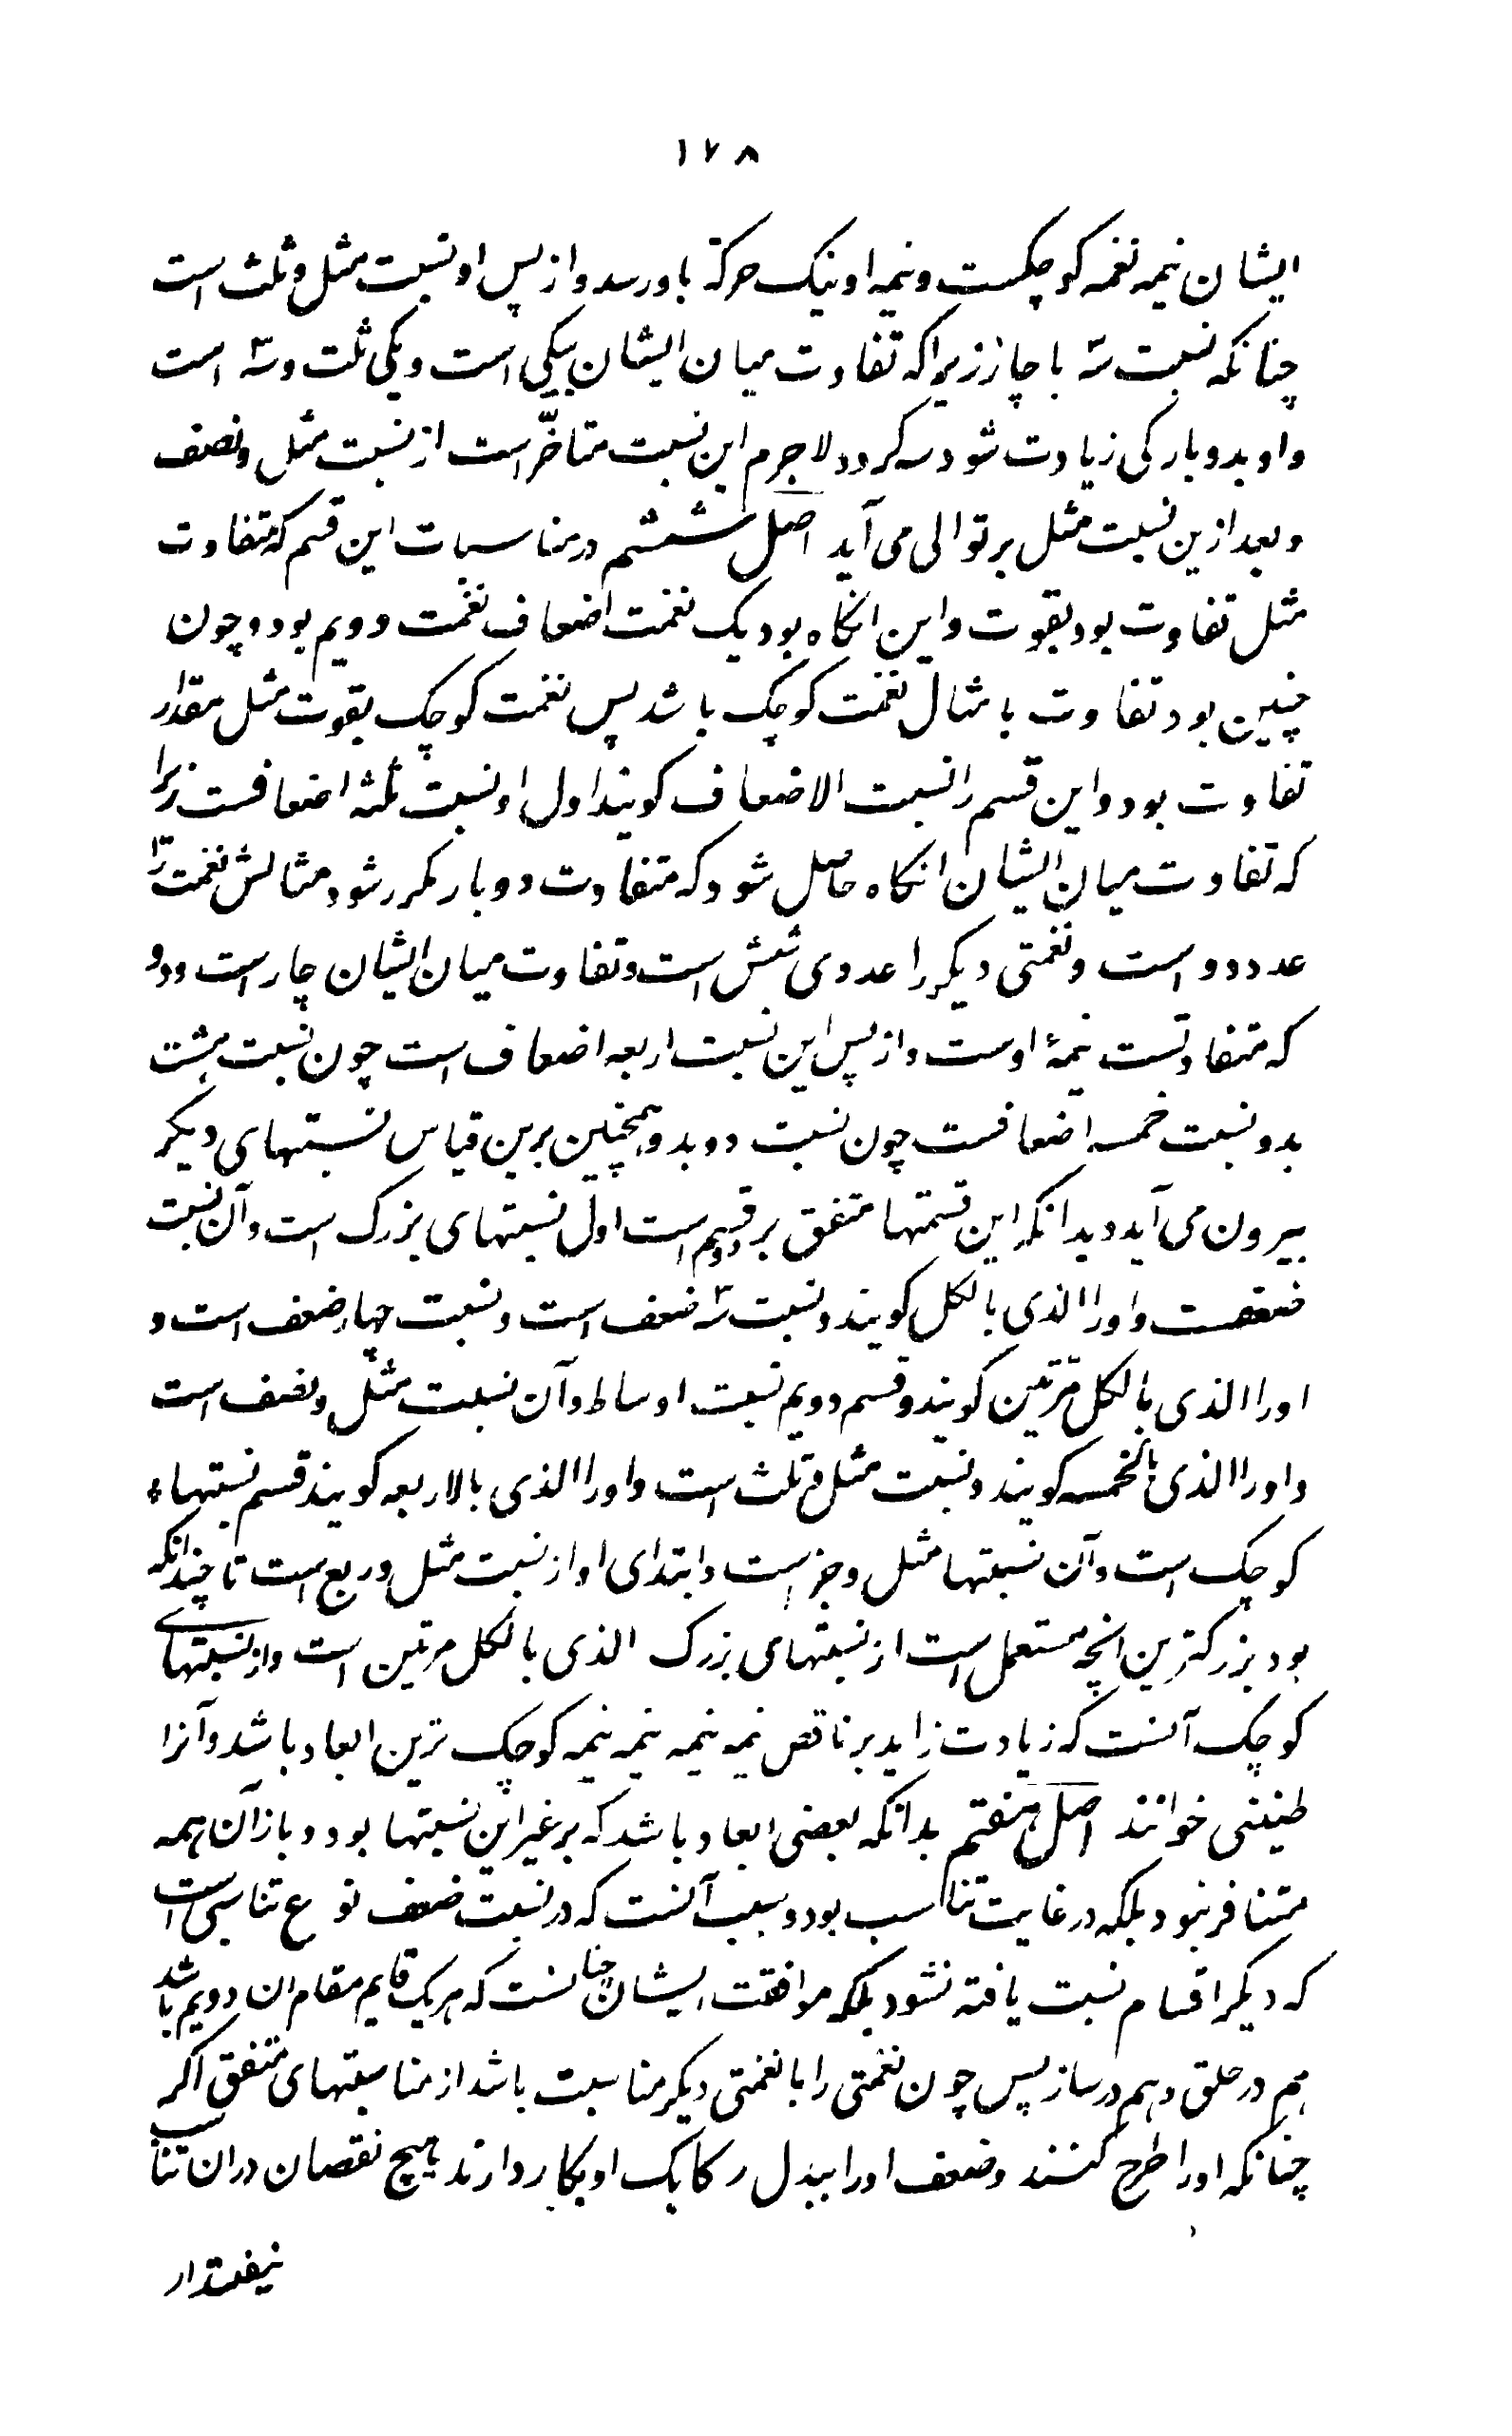 ۱۷۸
ایشان نیمه نغمه کوچکست و نیمه او نیک حرکة باو رسد و از پس او نسبت مثل و ثلث است
چنانکه نسبت سه با چار زیرا که تفاوت میان ایشان بیکی است و یکی ثلث و سه است
و او بدو بار کی زیادت شود سه کردد لاجرم این نسبت متاخّر است از نسبت مثل و نصف
و بعد ازین نسبت مثل بر توالی می آید اصل ششم در مناسبات این قسم که متفاوت
مثل تفاوت بود بقوت و این انکاه بود یک نغمت اضعاف نغمت دویم بود و چون
چنین بود تفاوت بامثال نغمت کوچک باشد پس نغمت کوچک بقوت مثل مقدار
تفاوت بود و این قسم را نسبت الاضعاف کویند اول او نسبت ثلثه اضعافست زیرا
که تفاوت میان ایشان انکاه حاصل شود که متفاوت دو بار مکرر شود مثالش نغمت را
عدد دو است و نغمتی دیکر را عددی شش است و تفاوت میان ایشان چار است و دو
که متفاوتست نیمهٔ اوست و از پس این نسبت اربعه اضعاف است چون نسبت هشت
بدو نسبت خمسه اضعافست چون نسبت ده بدو همچنین برین قیاس نسبتهای دیکر
بیرون می آید و بدانکه این قسمتها متفق بر دو قسم است اول نسبتهای بزرک است و آن نسبت
ضعفست و او را الذی بالکل کویند و نسبت سه ضعف است و نسبت چهار ضعف است و
او را الذی بالکل مرّتین کویند و قسم دویم نسبت اوساط و آن نسبت مثل و نصف است
و او را الذی بالخمسه کویند و نسبت مثل و ثلث است و او را الذی بالاربعه کویند قسم نسبتهاء
کوچک است و آن نسبتها مثل و جز است و ابتدای او از نسبت مثل و ربع است تا چندانکه
بود بزرکترین انچه مستعمل است از نسبتهای بزرک الذی بالکل مرتین است و از نسبتهای
کوچک آنست که زیادت زاید بر ناقص نیمه نیمه نیمه نیمه کوچک ترین ابعاد باشد و آنرا
طنینی خوانند اصل هفتم بدانکه بعضی ابعاد باشد که بر غیر این نسبتها بود و باز آن همه
متنافر نبود بلکه در غایت تناسب بود و سبب آنست که در نسبت ضعف نوع تناسبی است
که دیکر اقسام نسبت یافته نشود بلکه موافقت ایشان چنانست که هر یک قایم مقام ان دویم باشد
هم در حلق و هم در ساز پس چون نغمتی را با نغمتی دیکر مناسبت باشد از مناسبتهای متفق اکر
چنانکه او را طرح کنند و ضعف او را ببدل او بکار دارند هیچ نقصان دران تناسب
نیفتد از